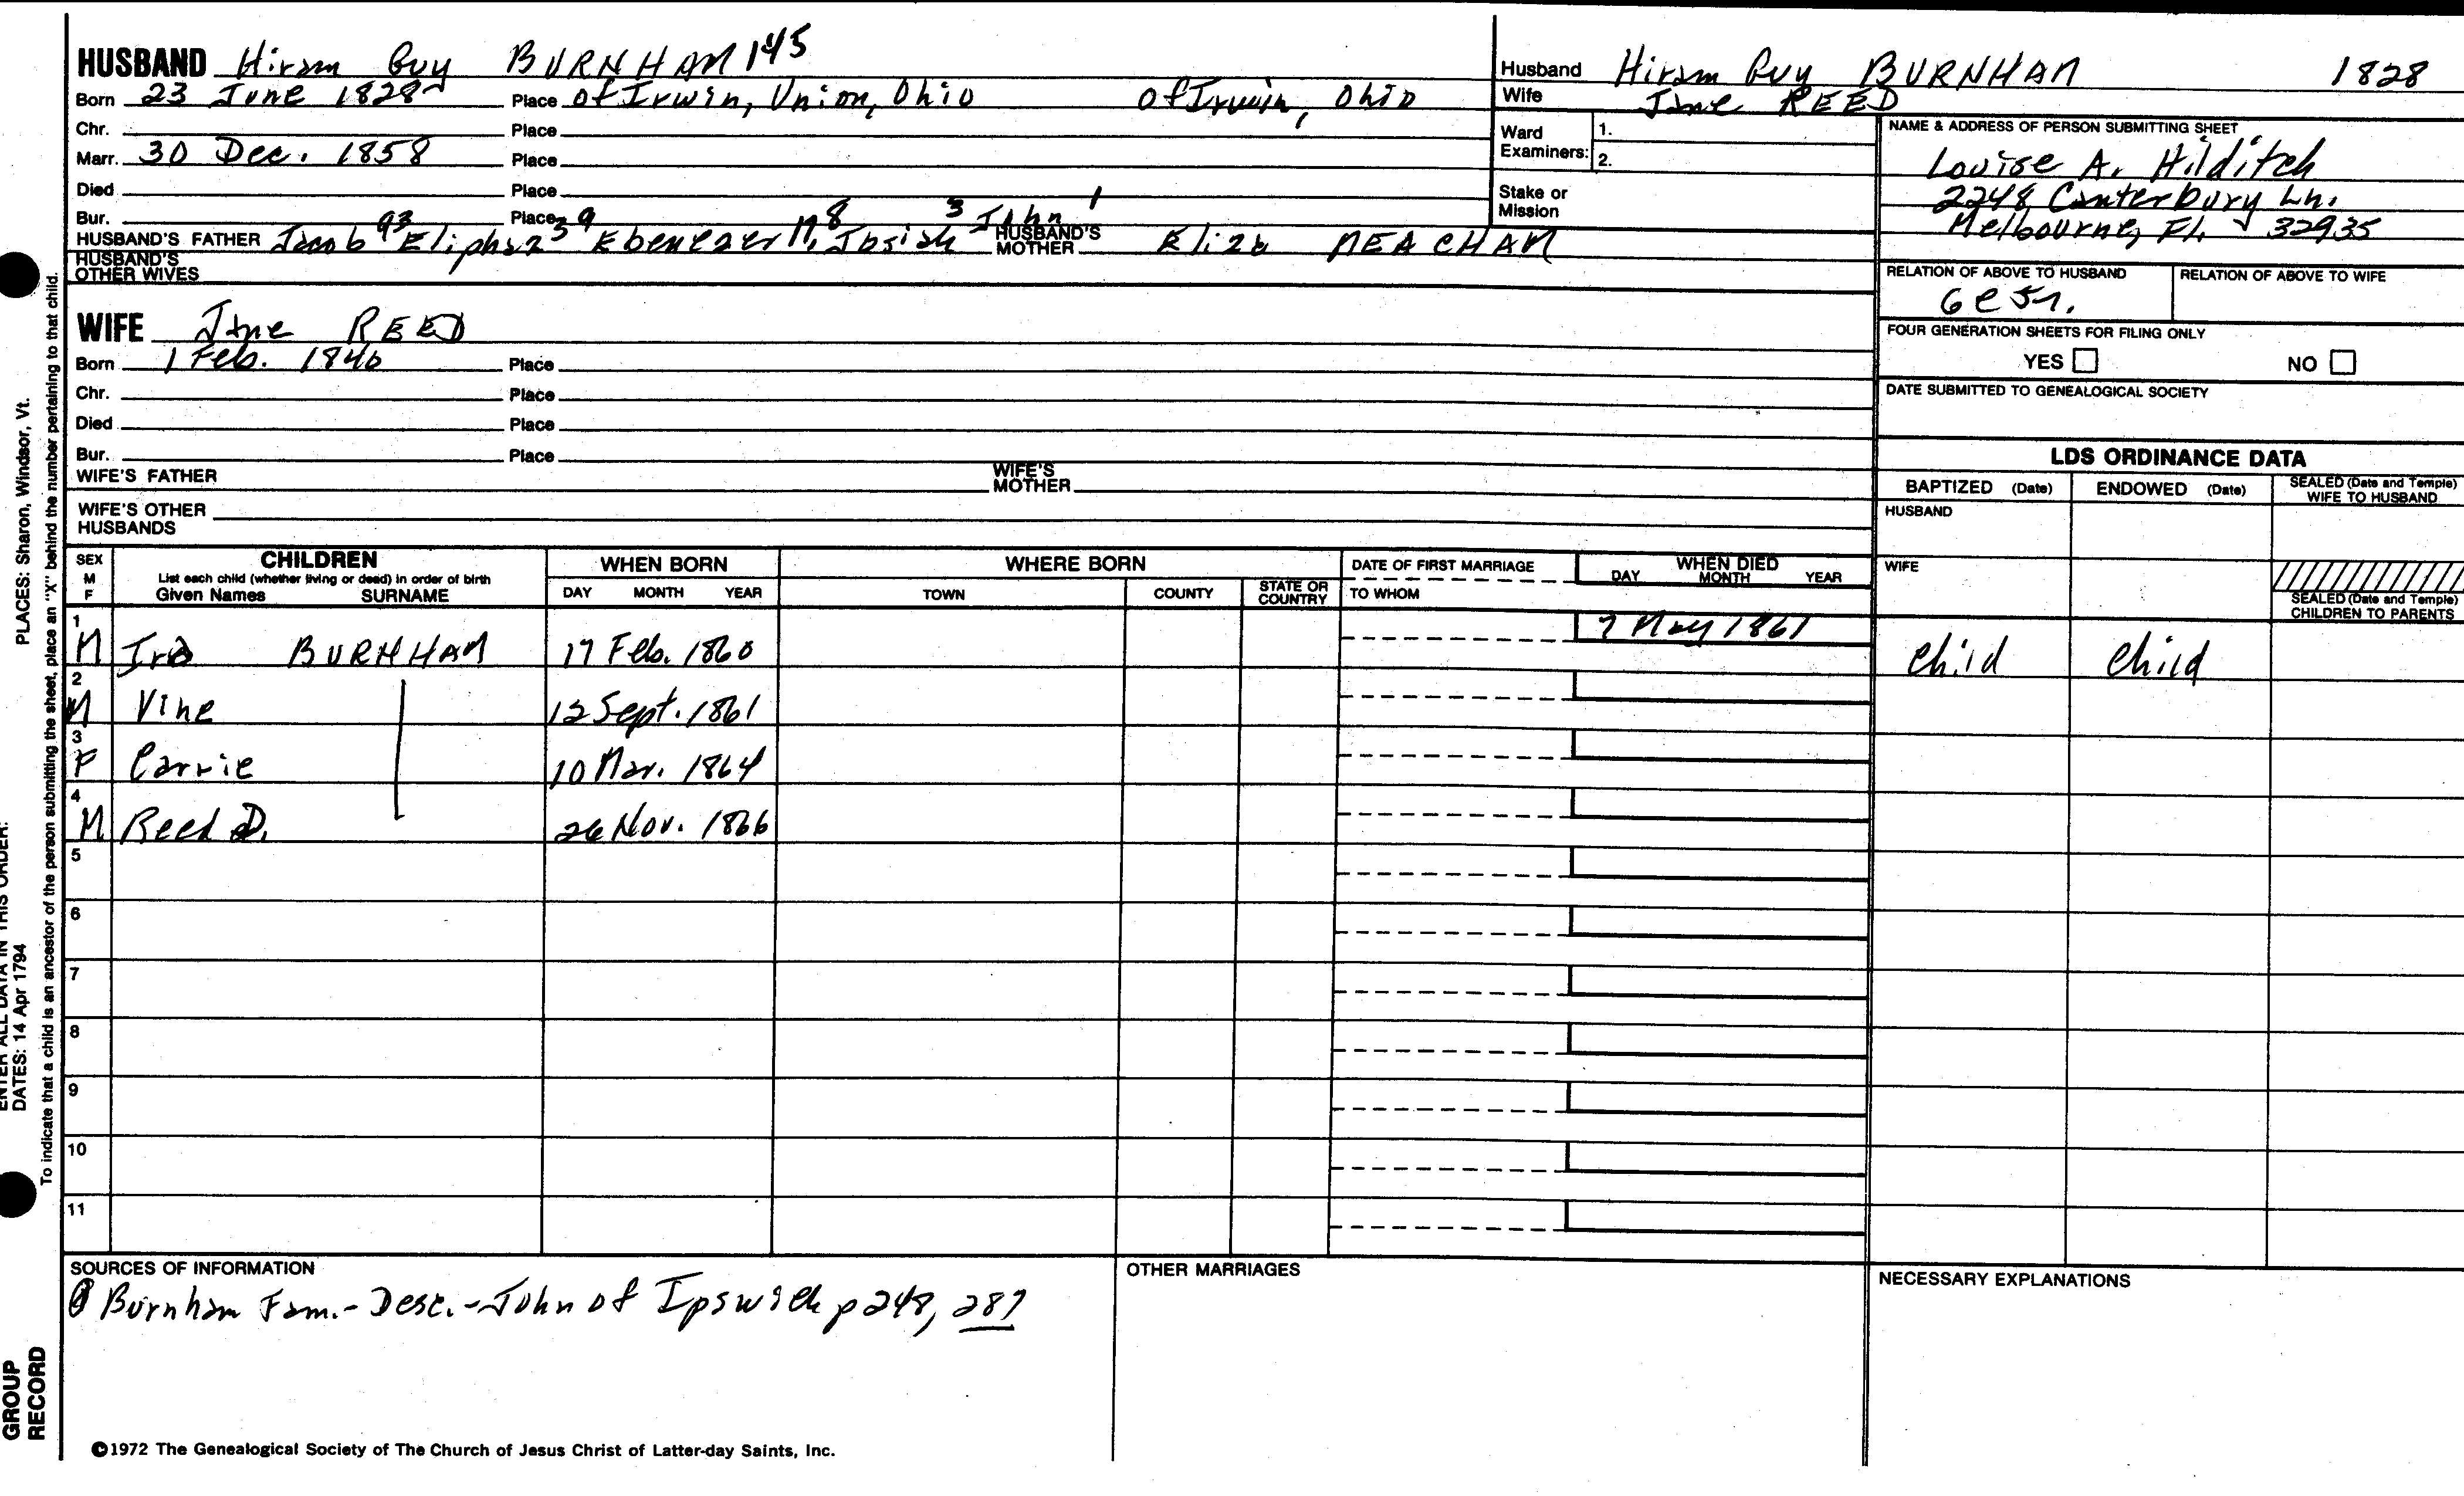 HUSBAND Hiram Guy BURNHAM 145
Born 23 June 1828 Place of Irwin, Union, Ohio of Irwin, Ohio
Chr. Place
Marr. 30 Dec. 1858 Place
Died Place
Bur. Place
HUSBAND'S FATHER Jacob 93 Eliphaz 39 Ebenezer 17, 8 Josiah 3 John 1 HUSBAND'S MOTHER Eliza MEACHAM
HUSBAND'S OTHER WIVES
WIFE Jane REED
Born 1 Feb. 1840 Place
Chr. Place
Died Place
Bur. Place
WIFE'S FATHER WIFE'S MOTHER
WIFE'S OTHER HUSBANDS
Husband Hiram Guy BURNHAM 1828
Wife Jane REED
Ward Examiners: 1.
2.
Stake or Mission
NAME & ADDRESS OF PERSON SUBMITTING SHEET
Louise A. Hilditch
2248 Canterbury Ln.
Melbourne, FL 32935
RELATION OF ABOVE TO HUSBAND RELATION OF ABOVE TO WIFE
FOUR GENERATION SHEETS FOR FILING ONLY
YES NO
DATE SUBMITTED TO GENEALOGICAL SOCIETY
LDS ORDINANCE DATA
BAPTIZED (Date) ENDOWED (Date) SEALED (Date and Temple) WIFE TO HUSBAND
HUSBAND
WIFE
SEALED (Date and Temple) CHILDREN TO PARENTS
SEX M F CHILDREN List each child (whether living or dead) in order of birth Given Names SURNAME WHEN BORN DAY MONTH YEAR WHERE BORN TOWN COUNTY STATE OR COUNTRY DATE OF FIRST MARRIAGE TO WHOM WHEN DIED DAY MONTH YEAR
1 M Ira BURNHAM 17 Feb. 1860 7 May 1861 Child Child
2 M Vine 12 Sept. 1861
3 F Carrie 10 Mar. 1864
4 M Reed D. 26 Nov. 1866
5
6
7
8
9
10
11
SOURCES OF INFORMATION
Burnham Fam.- Desc.- John of Ipswich p 248, 287
OTHER MARRIAGES
NECESSARY EXPLANATIONS
©1972 The Genealogical Society of The Church of Jesus Christ of Latter-day Saints, Inc.
ENTER ALL DATA IN THIS ORDER:
DATES: 14 Apr 1794 PLACES: Sharon, Windsor, Vt.
To indicate that a child is an ancestor of the person submitting the sheet, place an "X" behind the number pertaining to that child.
GROUP
RECORD